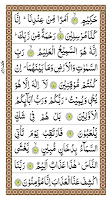 حَكِيمٍ ۝ أَمْرًا مِّنْ عِندِنَا ۚ إِنَّا
كُنَّا مُرْسِلِينَ ۝ رَحْمَةً مِّن رَّبِّكَ ۚ
إِنَّهُ هُوَ السَّمِيعُ الْعَلِيمُ ۝ رَبِّ
السَّمَٰوَٰتِ وَالْأَرْضِ وَمَا بَيْنَهُمَا ۖ إِن
كُنتُم مُّوقِنِينَ ۝ لَا إِلَٰهَ إِلَّا هُوَ
يُحْيِي وَيُمِيتُ ۖ رَبُّكُمْ وَرَبُّ آبَائِكُمُ
الْأَوَّلِينَ ۝ بَلْ هُمْ فِي شَكٍّ
يَلْعَبُونَ ۝ فَارْتَقِبْ يَوْمَ تَأْتِي
السَّمَاءُ بِدُخَانٍ مُّبِينٍ ۝ يَغْشَى
النَّاسَ ۖ هَٰذَا عَذَابٌ أَلِيمٌ ۝ رَّبَّنَا
اكْشِفْ عَنَّا الْعَذَابَ إِنَّا مُؤْمِنُونَ ۝